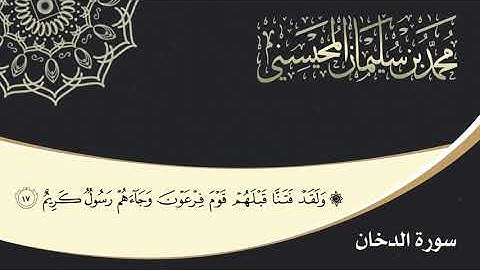 محمد بن سليمان المحيسني
۞ وَلَقَدْ فَتَنَّا قَبْلَهُمْ قَوْمَ فِرْعَوْنَ وَجَآءَهُمْ رَسُولٌ كَرِيمٌ ١٧
سورة الدخان